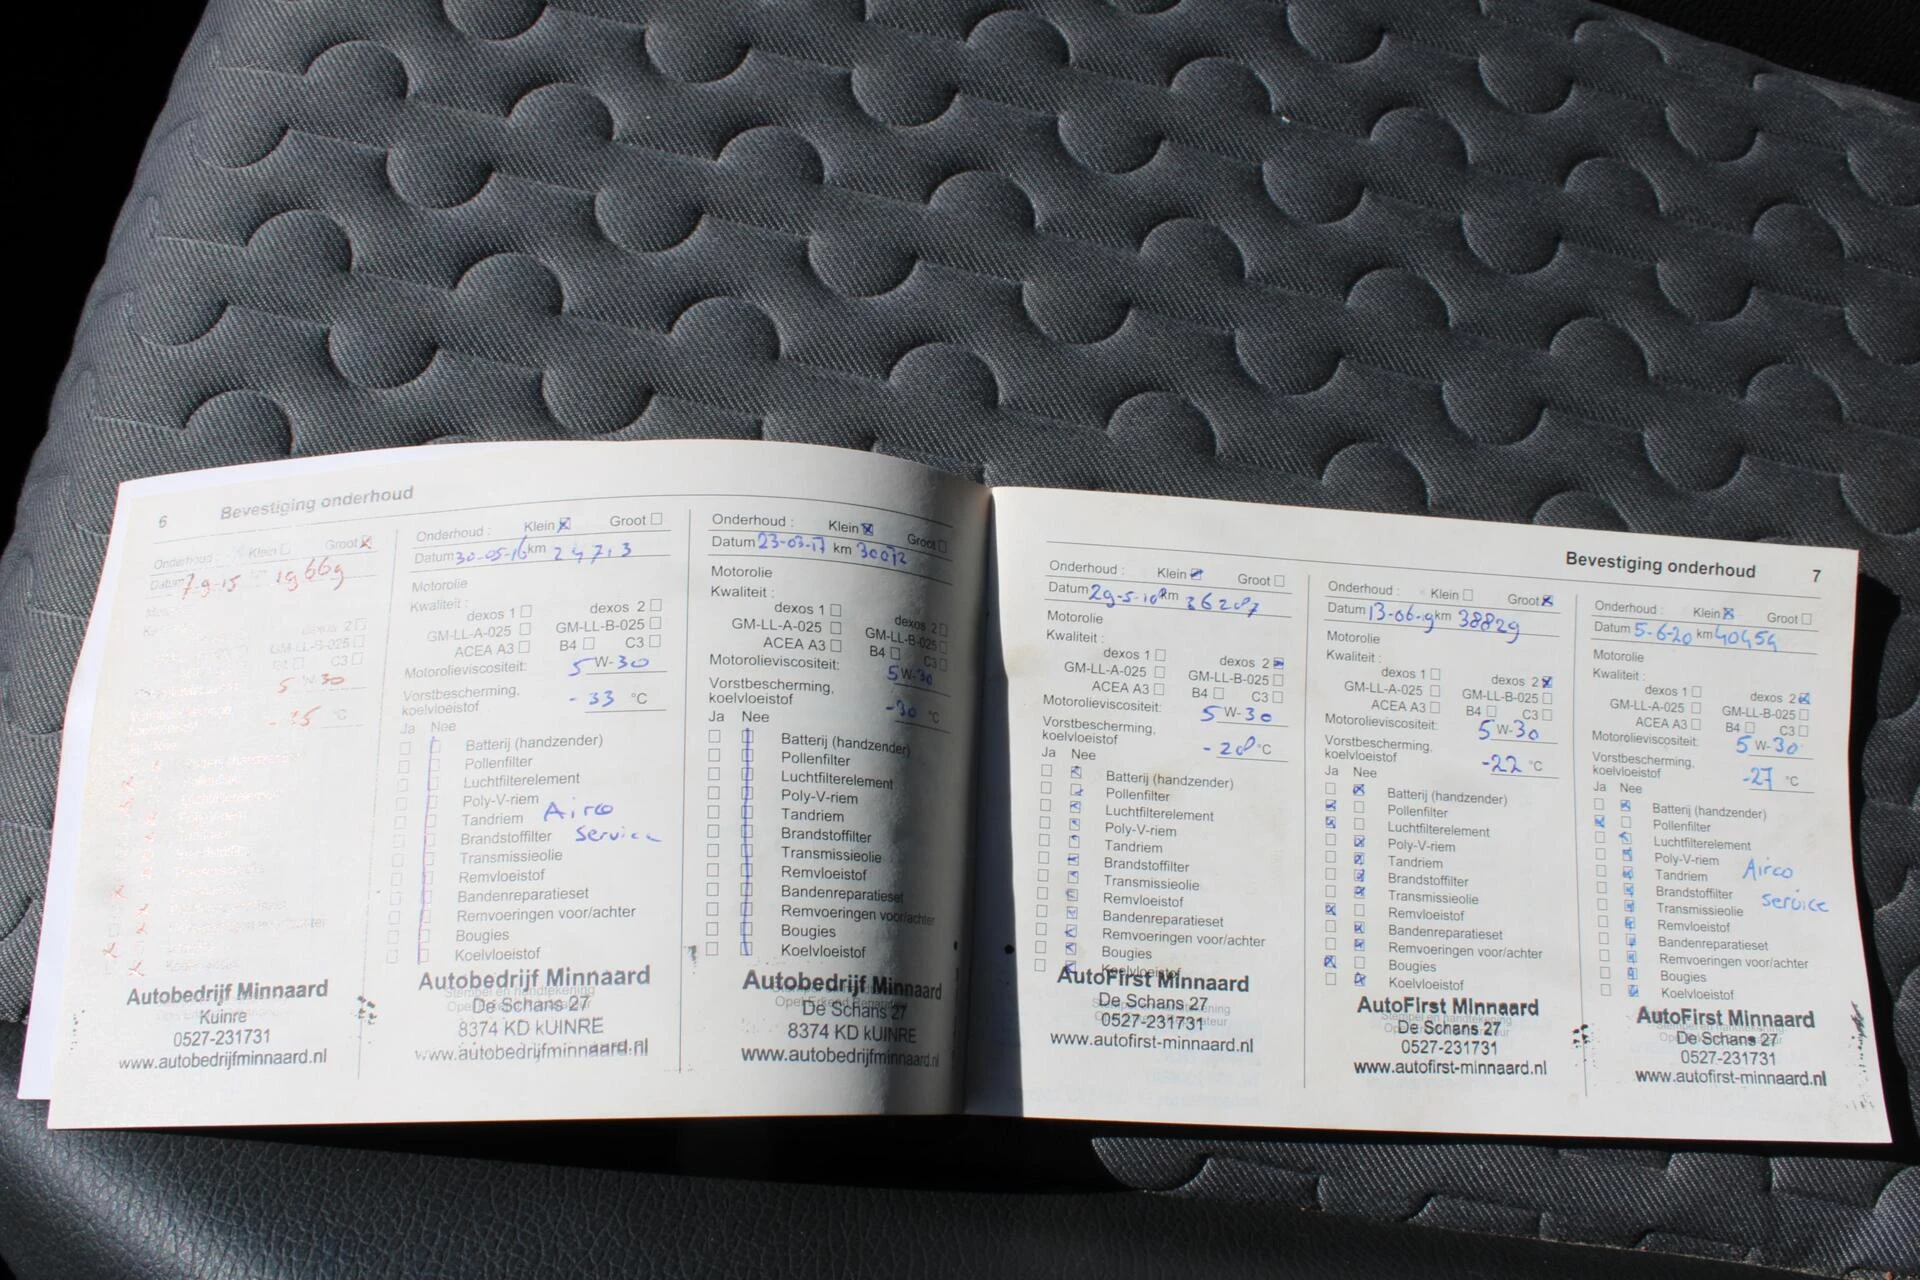 6 Bevestiging onderhoud
Onderhoud : Klein Groot
Datum 7-9-15 19669
dexos 2
GM-LL-B-025
B4 C3
5 W-30
°C
Nee
Autobedrijf Minnaard
Kuinre
0527-231731
www.autobedrijfminnaard.nl
Onderhoud : Klein Groot
Datum 30-05-16 km 24713
Motorolie
Kwaliteit :
dexos 1 dexos 2
GM-LL-A-025 GM-LL-B-025
ACEA A3 B4 C3
Motorolieviscositeit: 5 W-30
Vorstbescherming,
koelvloeistof -33 °C
Ja Nee
Batterij (handzender)
Pollenfilter
Luchtfilterelement
Poly-V-riem
Tandriem Airco
Brandstoffilter Service
Transmissieolie
Remvloeistof
Bandenreparatieset
Remvoeringen voor/achter
Bougies
Koelvloeistof
Autobedrijf Minnaard
Stempel en handtekening
De Schans 27
8374 KD kUINRE
www.autobedrijfminnaard.nl
Onderhoud : Klein Groot
Datum 23-03-17 km 30072
Motorolie
Kwaliteit :
dexos 1 dexos 2
GM-LL-A-025 GM-LL-B-025
ACEA A3 B4 C3
Motorolieviscositeit: 5 W-30
Vorstbescherming,
koelvloeistof -30 °C
Ja Nee
Batterij (handzender)
Pollenfilter
Luchtfilterelement
Poly-V-riem
Tandriem
Brandstoffilter
Transmissieolie
Remvloeistof
Bandenreparatieset
Remvoeringen voor/achter
Bougies
Koelvloeistof
Autobedrijf Minnaard
Stempel en handtekening
Opel Erkend Reparateur
De Schans 27
8374 KD kUINRE
www.autobedrijfminnaard.nl
Bevestiging onderhoud 7
Onderhoud : Klein Groot
Datum 29-5-18 km 36287
Motorolie
Kwaliteit :
dexos 1 dexos 2
GM-LL-A-025 GM-LL-B-025
ACEA A3 B4 C3
Motorolieviscositeit: 5 W-30
Vorstbescherming,
koelvloeistof -28 °C
Ja Nee
Batterij (handzender)
Pollenfilter
Luchtfilterelement
Poly-V-riem
Tandriem
Brandstoffilter
Transmissieolie
Remvloeistof
Bandenreparatieset
Remvoeringen voor/achter
Bougies
Koelvloeistof
AutoFirst Minnaard
De Schans 27
0527-231731
www.autofirst-minnaard.nl
Onderhoud : Klein Groot
Datum 13-06-19 km 38829
Motorolie
Kwaliteit :
dexos 1 dexos 2
GM-LL-A-025 GM-LL-B-025
ACEA A3 B4 C3
Motorolieviscositeit: 5 W-30
Vorstbescherming,
koelvloeistof -22 °C
Ja Nee
Batterij (handzender)
Pollenfilter
Luchtfilterelement
Poly-V-riem
Tandriem
Brandstoffilter
Transmissieolie
Remvloeistof
Bandenreparatieset
Remvoeringen voor/achter
Bougies
Koelvloeistof
AutoFirst Minnaard
Stempel en handtekening
De Schans 27
0527-231731
www.autofirst-minnaard.nl
Onderhoud : Klein Groot
Datum 5-6-20 km 40454
Motorolie
Kwaliteit :
dexos 1 dexos 2
GM-LL-A-025 GM-LL-B-025
ACEA A3 B4 C3
Motorolieviscositeit: 5 W-30
Vorstbescherming,
koelvloeistof -27 °C
Ja Nee
Batterij (handzender)
Pollenfilter
Luchtfilterelement
Poly-V-riem Airco
Tandriem
Brandstoffilter Service
Transmissieolie
Remvloeistof
Bandenreparatieset
Remvoeringen voor/achter
Bougies
Koelvloeistof
AutoFirst Minnaard
Stempel en handtekening
De Schans 27
0527-231731
www.autofirst-minnaard.nl